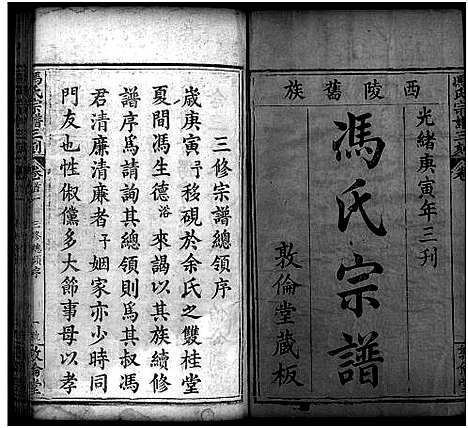 西陵舊族
光緒庚寅年三刊
馮氏宗譜
敦倫堂藏板
三修宗譜總領序
嵗庚寅予移硯於余氏之雙桂堂
夏間馮生德浴來謁以其族續修
譜序爲請詢其總領則爲其叔馮
君清廉清廉者予姻家亦少時同
門友也性俶儻多大節事母以孝
馮氏宗譜三刊
卷首
三修總領序
敦倫堂